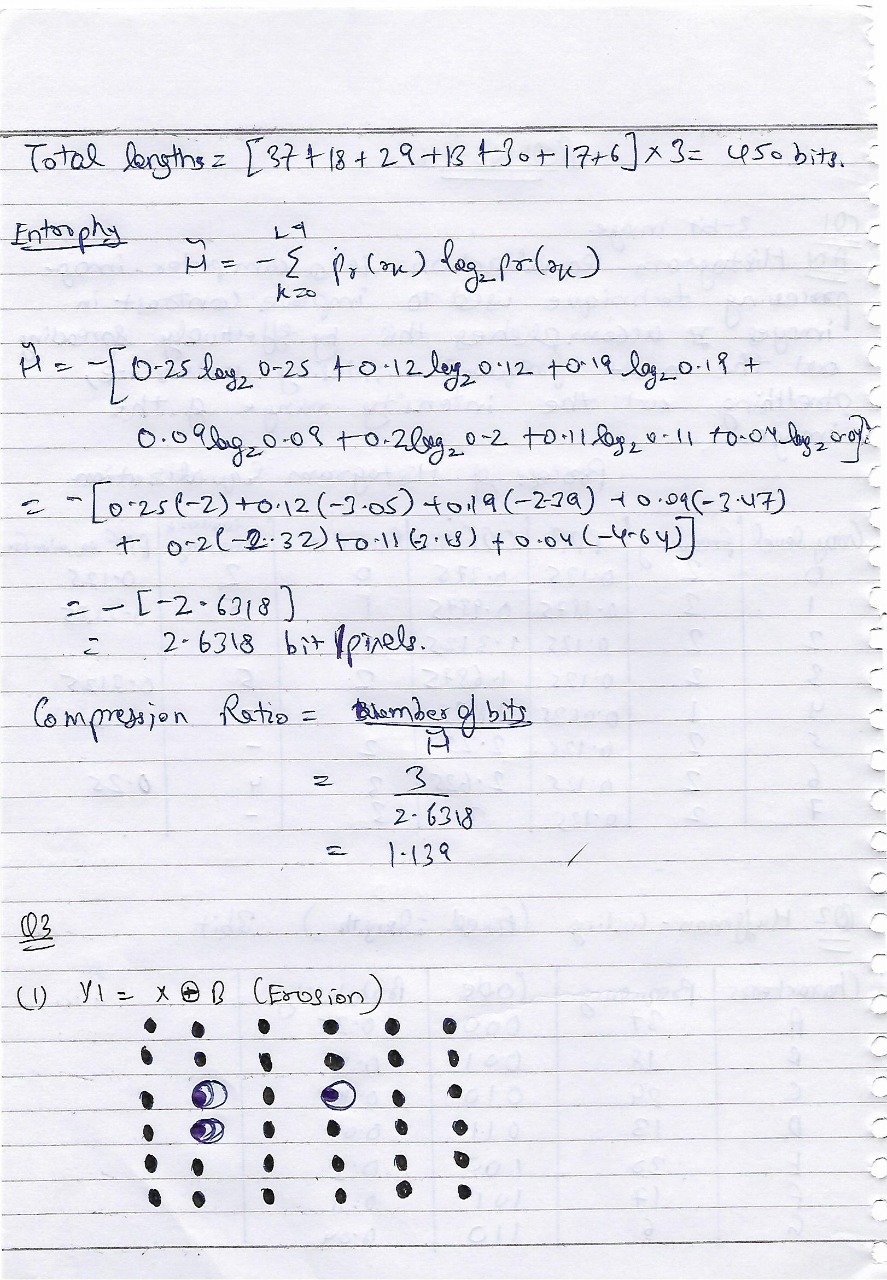 Total lengths = [37+18+29+13+30+17+6] × 3 = 450 bits.
Entrophy
H̃ = - Σ Pr(rk) log₂ Pr(rk)
L-1
k=0
H̃ = -[0.25 log₂ 0.25 + 0.12 log₂ 0.12 + 0.19 log₂ 0.19 +
0.09 log₂ 0.09 + 0.2 log₂ 0.2 + 0.11 log₂ 0.11 + 0.04 log₂ 0.04]
= -[0.25(-2)+0.12(-3.05)+0.19(-2.39)+0.09(-3.47)
+ 0.2(-2.32)+0.11(3.18)+0.04(-4.64)]
= -[-2.6318]
= 2.6318 bit/pixels.
Compression Ratio = Number of bits
H̃
= 3
2.6318
= 1.139
Q3
(1) Y1 = X ⊕ B (Erosion)